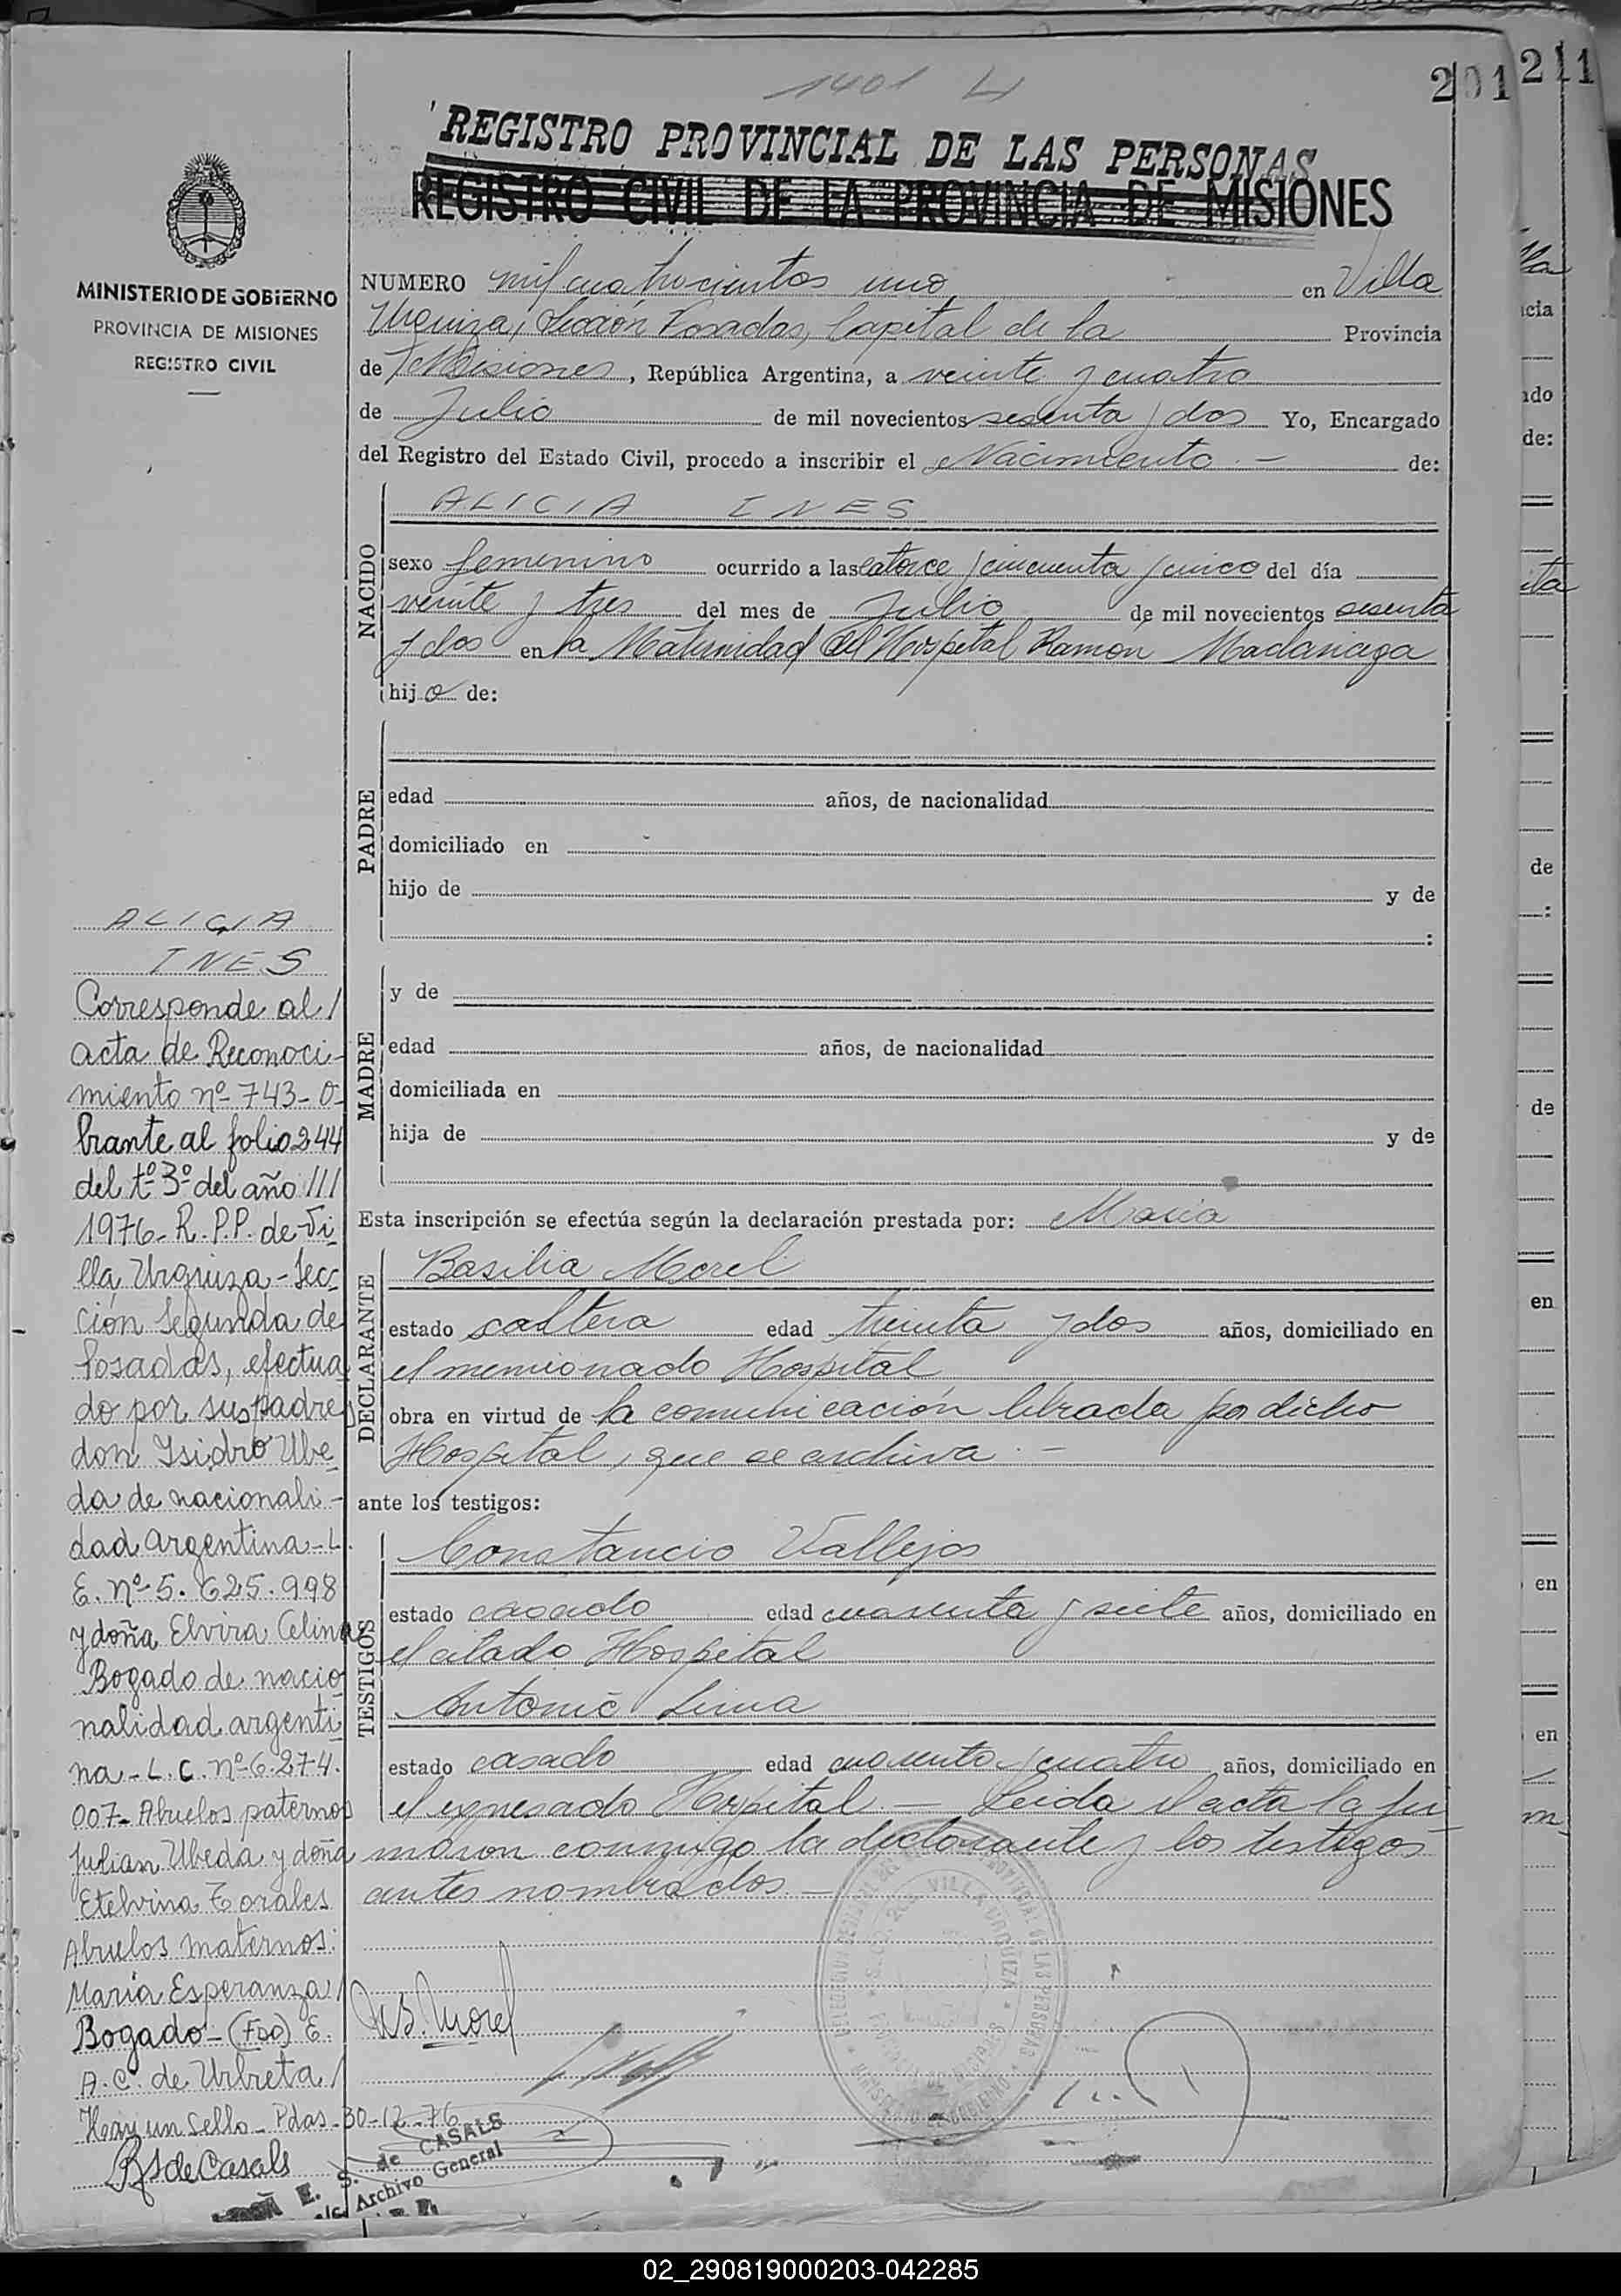 1401
201
211
REGISTRO PROVINCIAL DE LAS PERSONAS
REGISTRO CIVIL DE LA PROVINCIA DE MISIONES
MINISTERIO DE GOBIERNO
PROVINCIA DE MISIONES
REGISTRO CIVIL
NUMERO mil cuatrocientos uno en Villa
Urquiza, Sección Posadas, Capital de la Provincia
de Misiones, República Argentina, a veinte y cuatro
de Julio de mil novecientos sesenta y dos Yo, Encargado
del Registro del Estado Civil, procedo a inscribir el Nacimiento.- de:
NACIDO
ALICIA INES
sexo femenino ocurrido a las catorce y cincuenta y cinco del día
veinte y tres del mes de Julio de mil novecientos sesenta
y dos en la Maternidad del Hospital Ramón Madariaga
hija de:
PADRE
edad años, de nacionalidad
domiciliado en
hijo de y de
:
MADRE
y de
edad años, de nacionalidad
domiciliada en
hija de y de
Esta inscripción se efectúa según la declaración prestada por: Maria
DECLARANTE
Basilia Morel
estado soltera edad treinta y dos años, domiciliado en
el mencionado Hospital
obra en virtud de la comunicación librada por dicho
Hospital, que se archiva.-
ante los testigos:
TESTIGOS
Constancio Vallejos
estado casado edad cuarenta y siete años, domiciliado en
el citado Hospital
Antonio Lima
estado casado edad cuarenta y cuatro años, domiciliado en
el expresado Hospital.- Leida el acta la fir
maron conmigo la declarante y los testigos
antes nombrados.-
B. Morel
ALICIA
INES
Corresponde al/
acta de Reconoci-
miento nº 743-o-
brante al folio 244
del tº 3º del año ///
1976- R.P.P. de Vi-
lla Urquiza- Sec-
ción Segunda de
Posadas, efectua
do por sus padres
don Isidro Ube
da de nacionali-
dad argentina- L.
E. nº 5.625.998
y doña Elvira Celina
Bogado de nacio
nalidad argenti
na- L.C. nº 6.274.
007- Abuelos paternos
Julian Ubeda y doña
Etelvina Torales
Abuelos maternos:
Maria Esperanza/
Bogado- (Fdo) E.
A.C. de Urbreta/
Hay un sello- Pdas-30-12-76
RS de Casals
E. S. de CASALS
Archivo General
VILLA URQUIZA
02_290819000203-042285